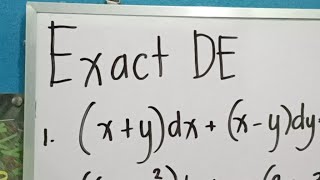 Exact DE
1. (x+y)dx + (x-y)dy